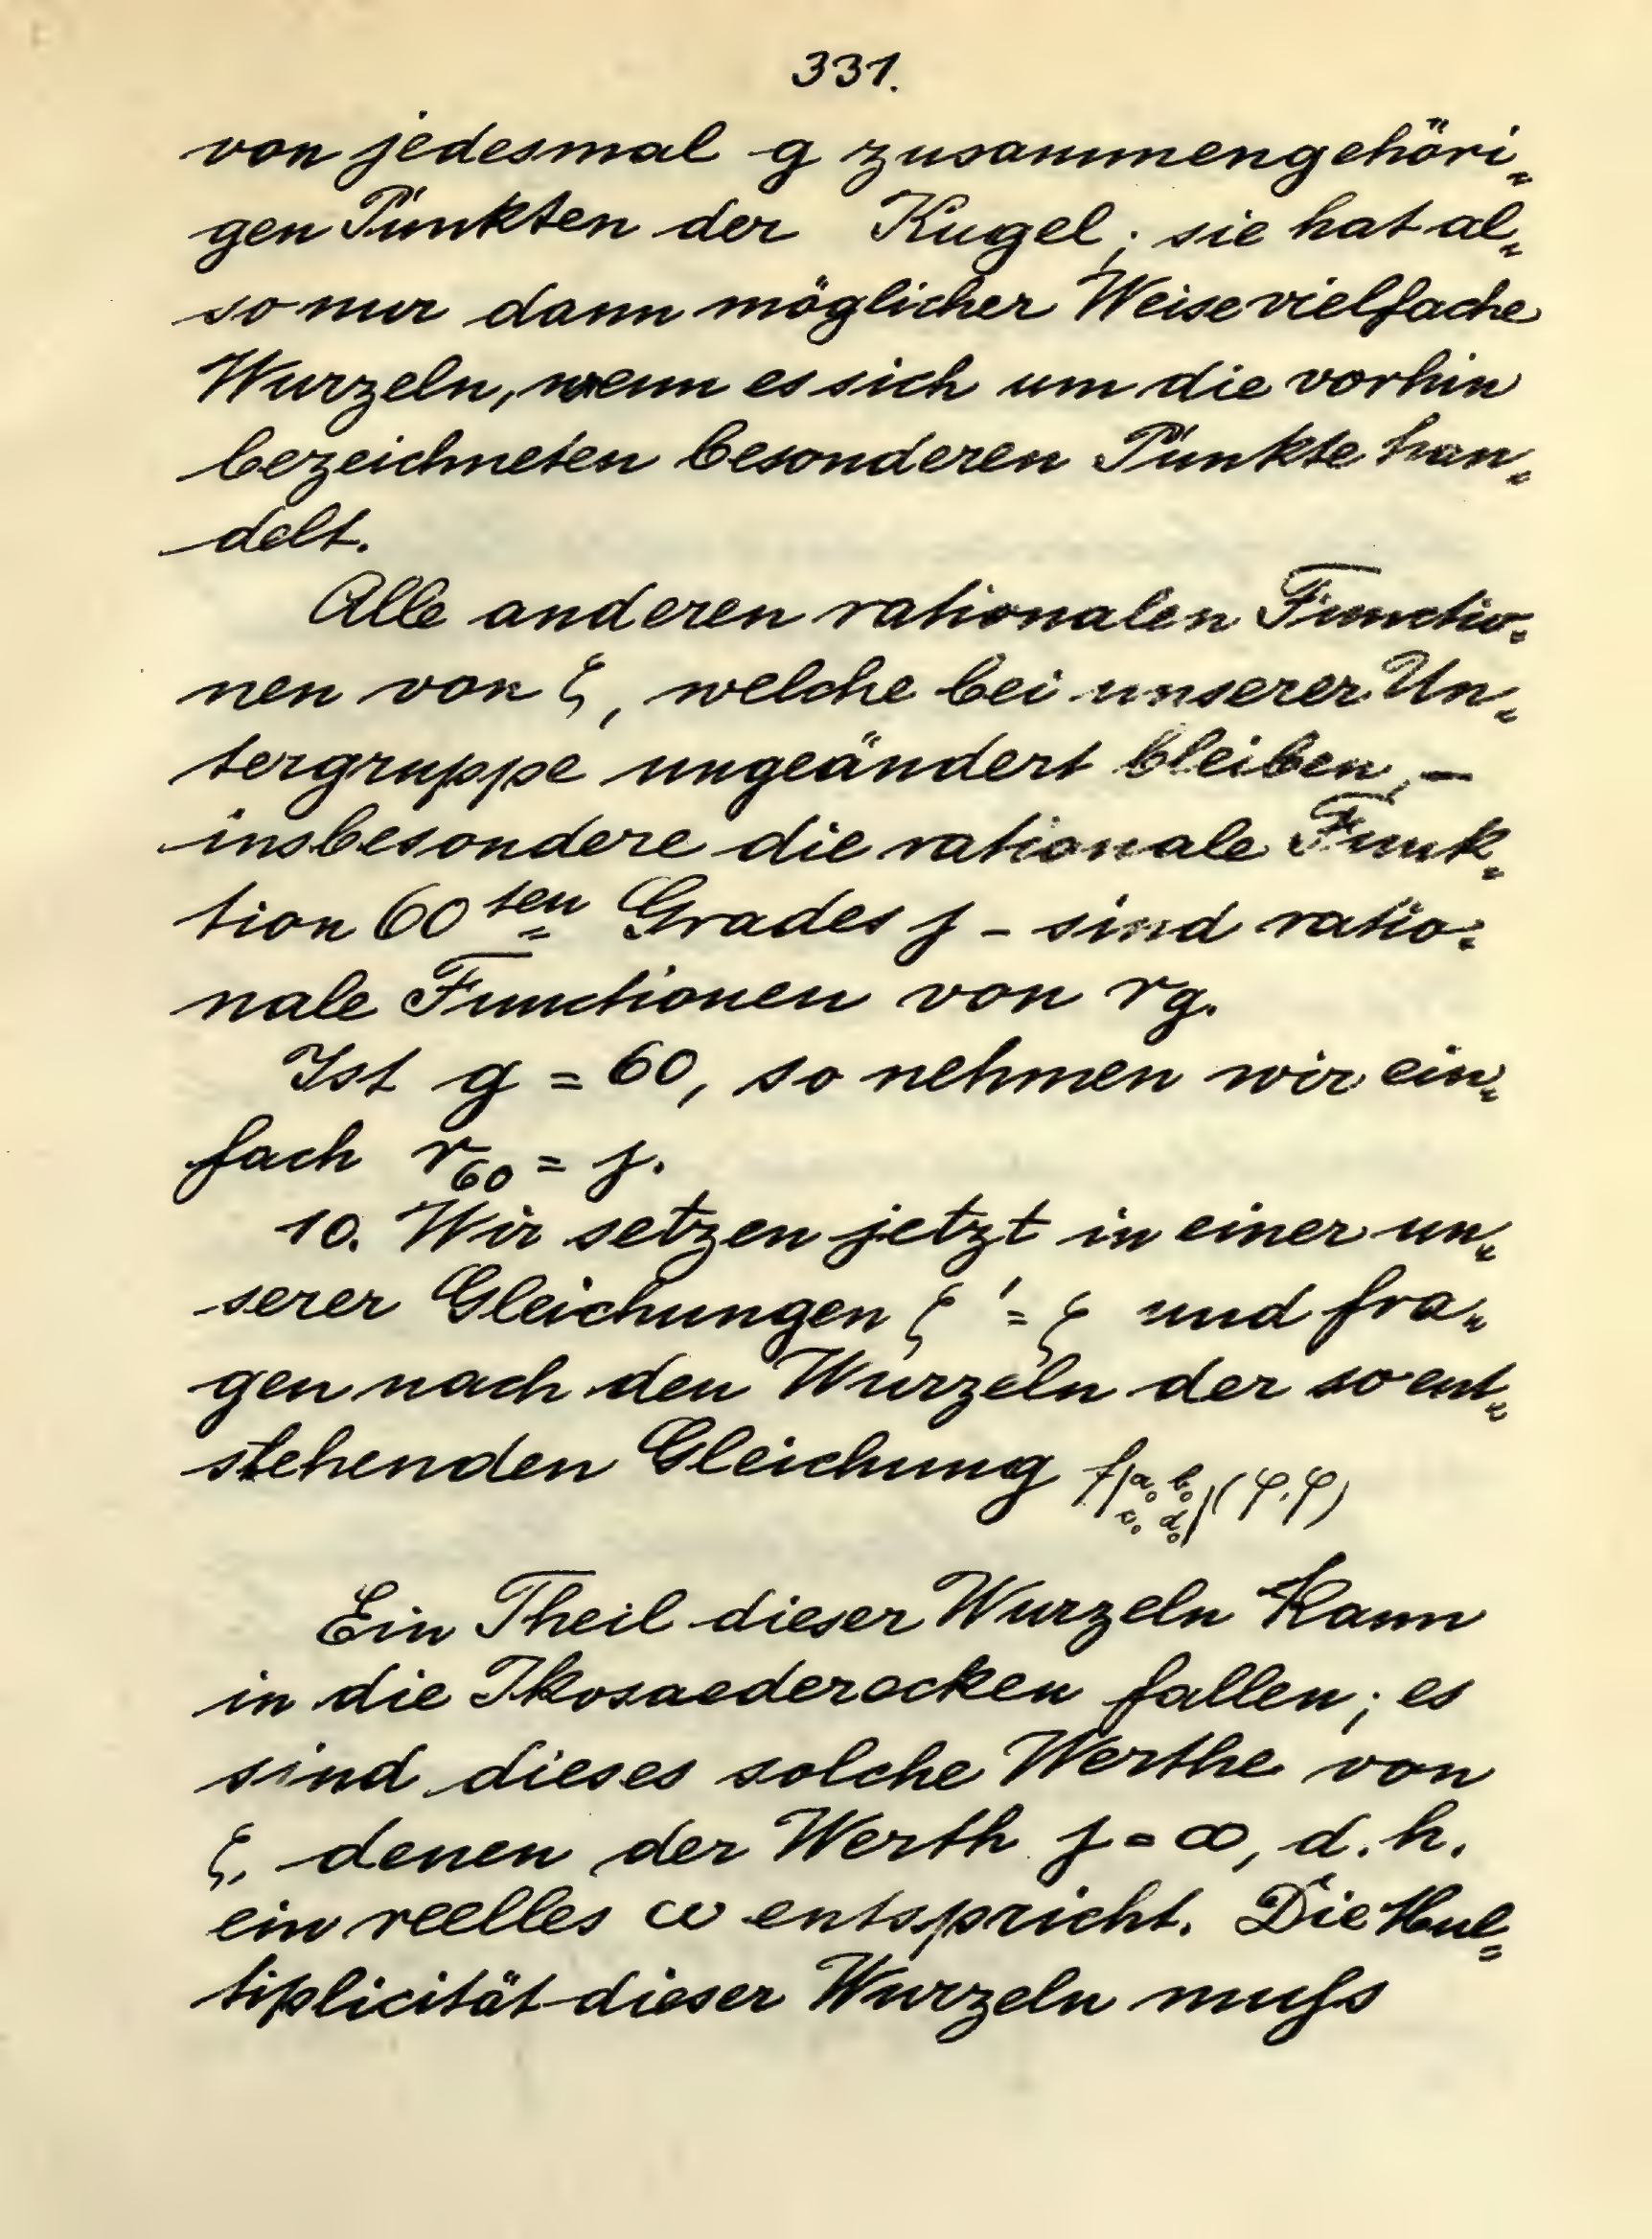 331.
von jedesmal g zusammengehöri=
gen Punkten der Kugel; sie hat al=
so nur dann möglicher Weise vielfache
Wurzeln, wenn es sich um die vorhin
bezeichneten besonderen Punkte han=
delt.
Alle anderen rationalen Functio=
nen von ζ, welche bei unserer Un=
tergruppe ungeändert bleiben, —
insbesondere die rationale Funk=
tion 60ten Grades j - sind ratio=
nale Functionen von rg.
Ist g = 60, so nehmen wir ein=
fach r₆₀ = j.
10. Wir setzen jetzt in einer un=
serer Gleichungen ζ' = ζ und fra=
gen nach den Wurzeln der so ent=
stehenden Gleichung f|a₀ b₀ c₀ d₀|(φ.φ)
Ein Theil dieser Wurzeln Kann
in die Ikosaederecken fallen; es
sind dieses solche Werthe von
ζ, denen der Werth j = ∞, d. h.
ein reelles ω entspricht. Die Mul=
tiplicität dieser Wurzeln muſs